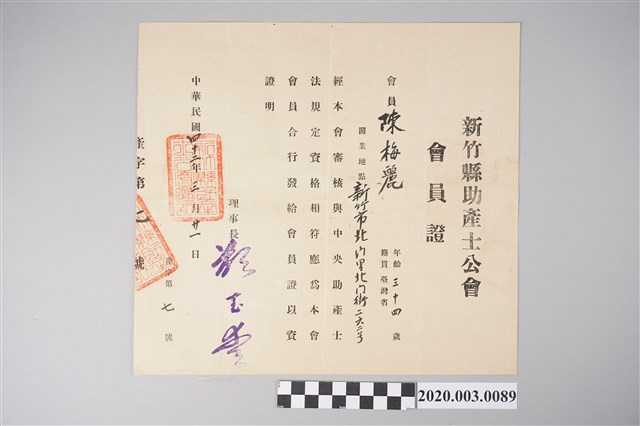 新竹縣助產士公會
會員證
會員 陳梅麗
年齡 三十四 歲
籍貫 臺灣省
開業地點 新竹市北門里北門街二六二号
經本會審核與中央助產士
法規定資格相符應為本會
會員合行發給會員證以資
證明
理事長
中華民國四十二年三月廿一日
字第七號
產字第
號
2020.003.0089